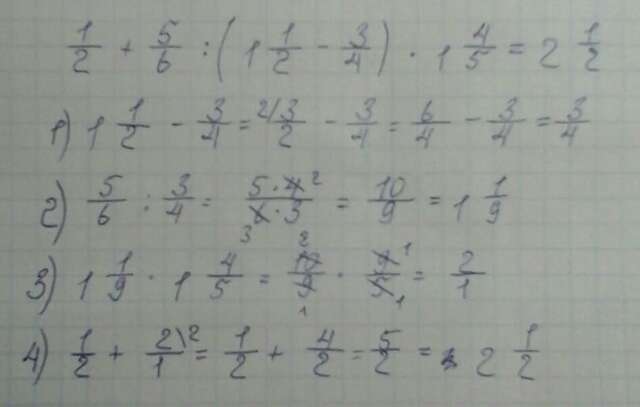 1/2 + 5/6 : (1 1/2 - 3/4) · 1 4/5 = 2 1/2
1) 1 1/2 - 3/4 = 2/3/2 - 3/4 = 6/4 - 3/4 = 3/4
2) 5/6 : 3/4 = 5·4 2/6·3 3 = 10/9 = 1 1/9
3) 1 1/9 · 1 4/5 = 10 2/9 1 · 9 1/5 1 = 2/1
4) 1/2 + 2\2/1 = 1/2 + 4/2 = 5/2 = 2 1/2